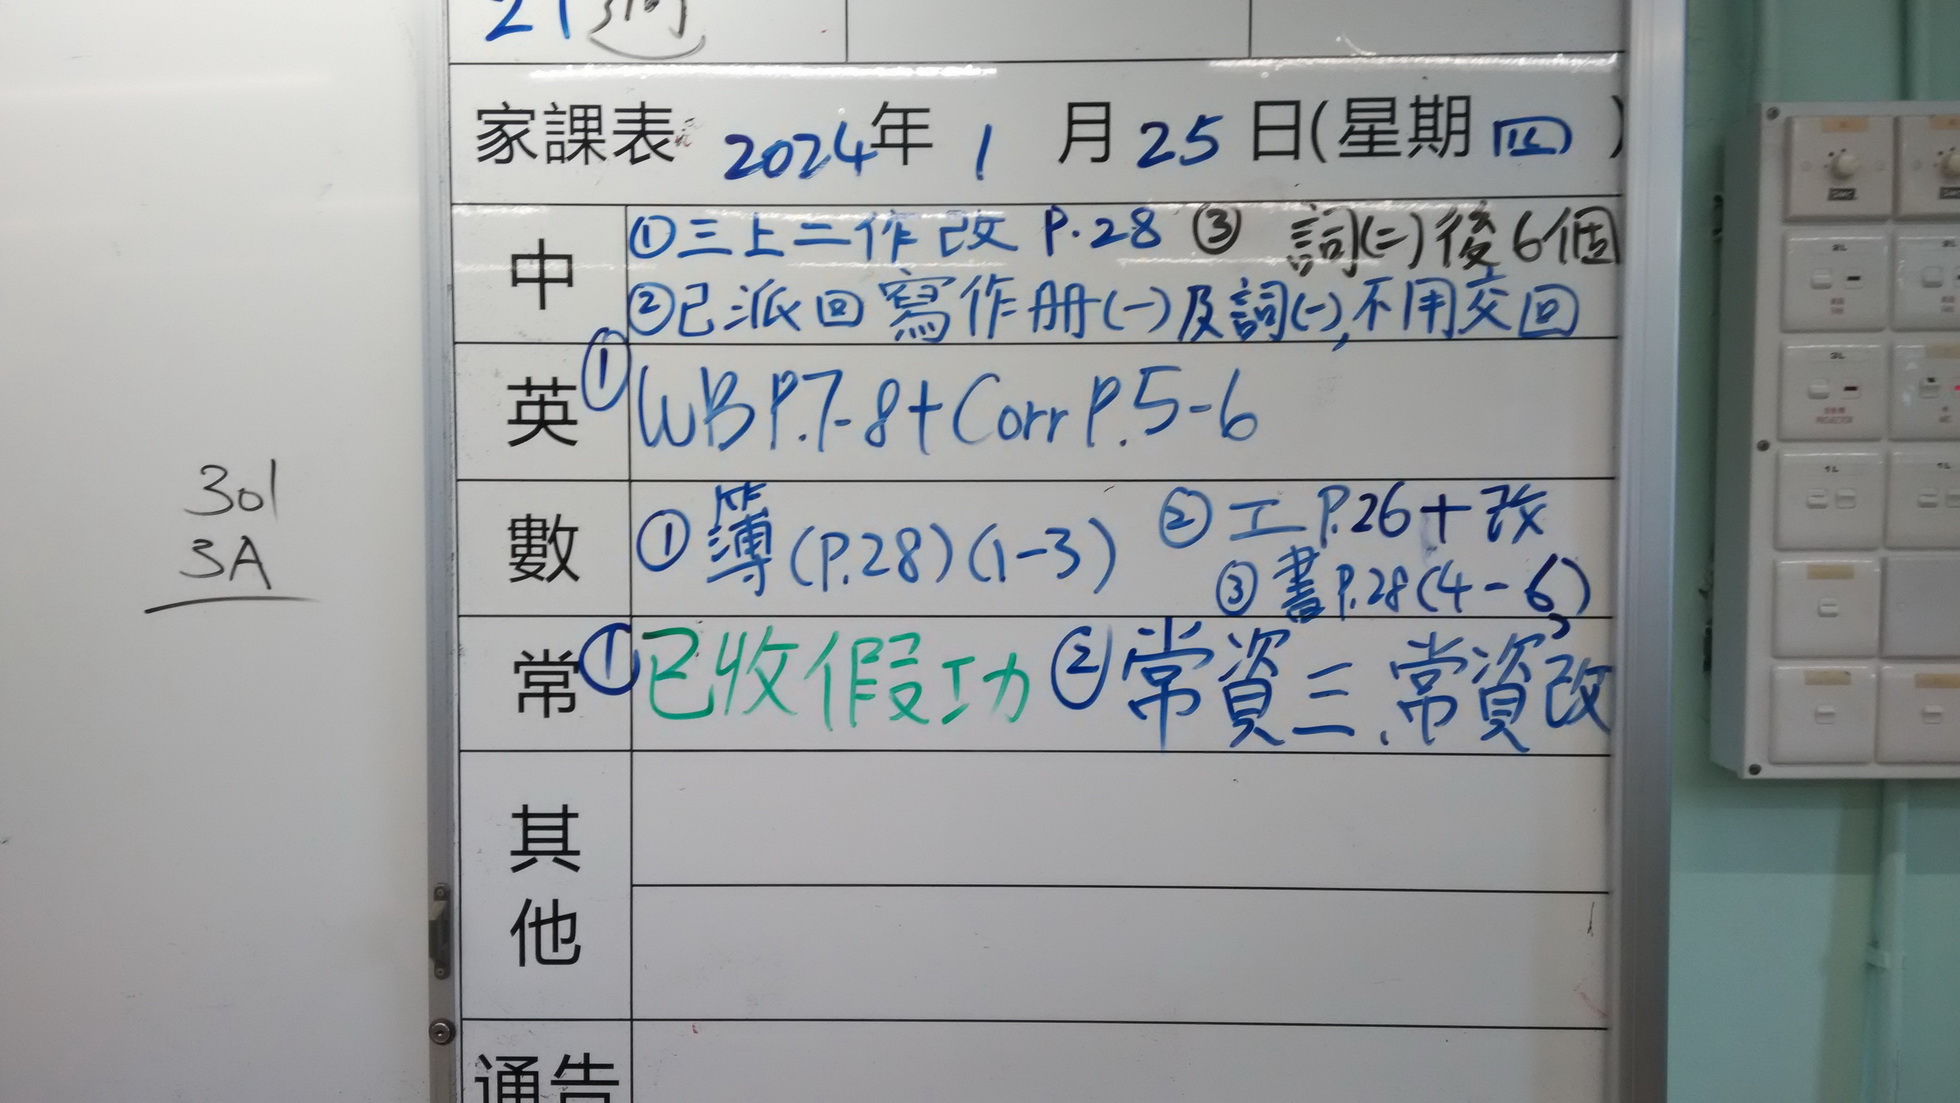 21週
家課表 2024年 1 月 25 日(星期 四 )
中
①三上二作改 P.28 ③ 詞(二)後6個
②已派回寫作册(一)及詞(一),不用交回
英 ① WB P.7-8 + Corr P.5-6
數 ①簿(P.28)(1-3) ②工P.26+改
③書P.28(4-6)
常 ①已收假功 ②常資三、常資改
其他
通告
301
3A